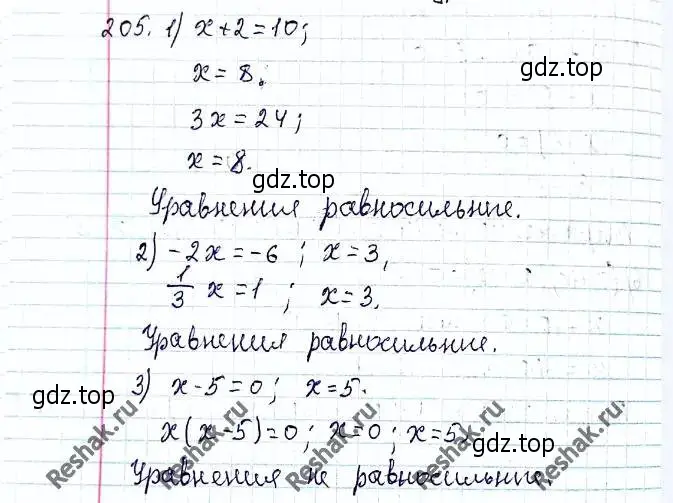 205. 1) x+2=10;
x=8.
gdz.top
3x=24;
x=8.
gdz.top
Уравнения равносильные.
2) -2x=-6 ; x=3,
gdz.top
1/3 x=1 ; x=3.
Уравнения равносильные.
3) x-5=0; x=5.
gdz.top
x(x-5)=0; x=0; x=5.
gdz.top
Уравнения не равносильные.
Reshak.ru
Reshak.ru
Reshak.ru
Reshak.ru